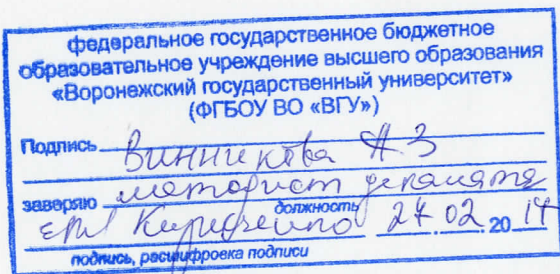 федеральное государственное бюджетное
образовательное учреждение высшего образования
«Воронежский государственный университет»
(ФГБОУ ВО «ВГУ»)
Подпись Винникова А.З
заверяю методист деканата
должность
Кирдеенко 27.02 2017
подпись, расшифровка подписи